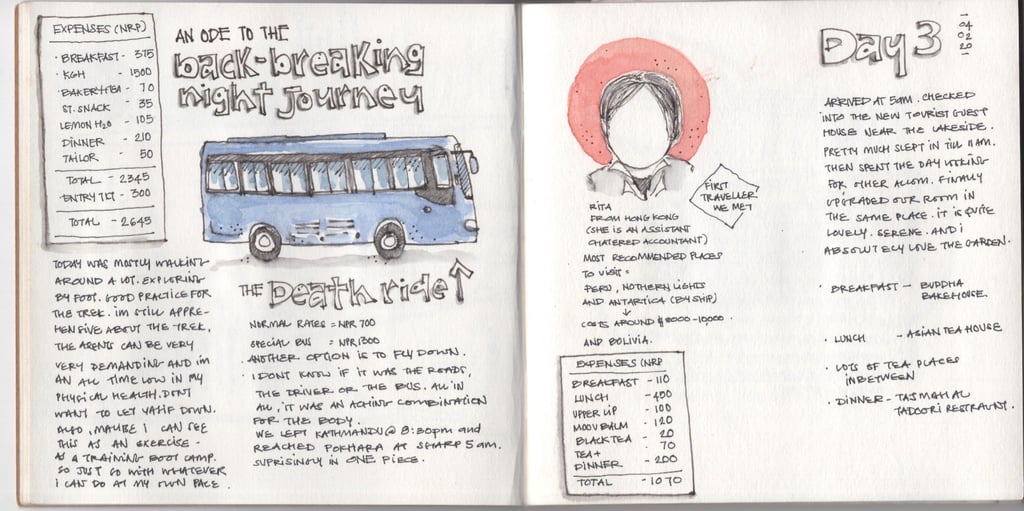 EXPENSES (NRP)
· BREAKFAST - 375
· KGH - 1500
· BAKERY+TEA - 70
ST. SNACK - 35
LEMON H2O - 105
DINNER - 210
TAILOR - 50
TOTAL - 2345
- ENTRY TKT - 300
TOTAL - 2645
AN ODE TO THE
back-breaking
night journey
THE Death ride
TODAY WAS MOSTLY WALKING
AROUND A LOT. EXPLORING
BY FOOT. GOOD PRACTICE FOR
THE TREK. IM STILL APPRE-
HENSIVE ABOUT THE TREK,
THE AGENTS CAN BE VERY
VERY DEMANDING AND IM
AN ALL TIME LOW IN MY
PHYSICAL HEALTH. DONT
WANT TO LET DOWN.
ALSO, MAYBE I CAN SEE
THIS AS AN EXERCISE -
AS A TRAINING BOOT CAMP.
SO JUST GO WITH WHATEVER
I CAN DO AT MY OWN PACE.
NORMAL RATES = NPR 700
SPECIAL BUS = NPR 1300
· ANOTHER OPTION IS TO FLY DOWN.
· I DONT KNOW IF IT WAS THE ROADS,
THE DRIVER OR THE BUS. ALL IN
ALL, IT WAS AN ACHING COMBINATION
FOR THE BODY.
WE LEFT KATHMANDU @ 8:30pm and
REACHED POKHARA AT SHARP 5am.
SUPRISINGLY IN ONE PIECE.
FIRST
TRAVELLER
WE MET
RITA
FROM HONG KONG
(SHE IS AN ASSISTANT
CHATERED ACCOUNTANT)
MOST RECOMMENDED PLACES
TO VISIT =
PERU, NOTHERN LIGHTS
AND ANTARTICA (BY SHIP)
COSTS AROUND $8000-10,000.
AND BOLIVIA.
EXPENSES (NRP
BREAKFAST - 110
LUNCH - 400
UPPER LIP - 100
MOOV BALM - 120
BLACK TEA - 20
TEA + 70
DINNER - 200
TOTAL - 1070
Day 3
04
02
20
ARRIVED AT 5am. CHECKED
INTO THE NEW TOURIST GUEST
HOUSE NEAR THE LAKESIDE.
PRETTY MUCH SLEPT IN TILL 11AM.
THEN SPENT THE DAY LOOKING
FOR OTHER ACCOM. FINALLY
UPGRADED OUR ROOM IN
THE SAME PLACE. IT IS QUITE
LOVELY. SERENE. AND I
ABSOLUTELY LOVE THE GARDEN.
· BREAKFAST - BUDDHA
BAKEHOUSE.
· LUNCH - ASIAN TEA HOUSE
· LOTS OF TEA PLACES
INBETWEEN
· DINNER - TAJ MAHAL
TADOORI RESTRAUNT.